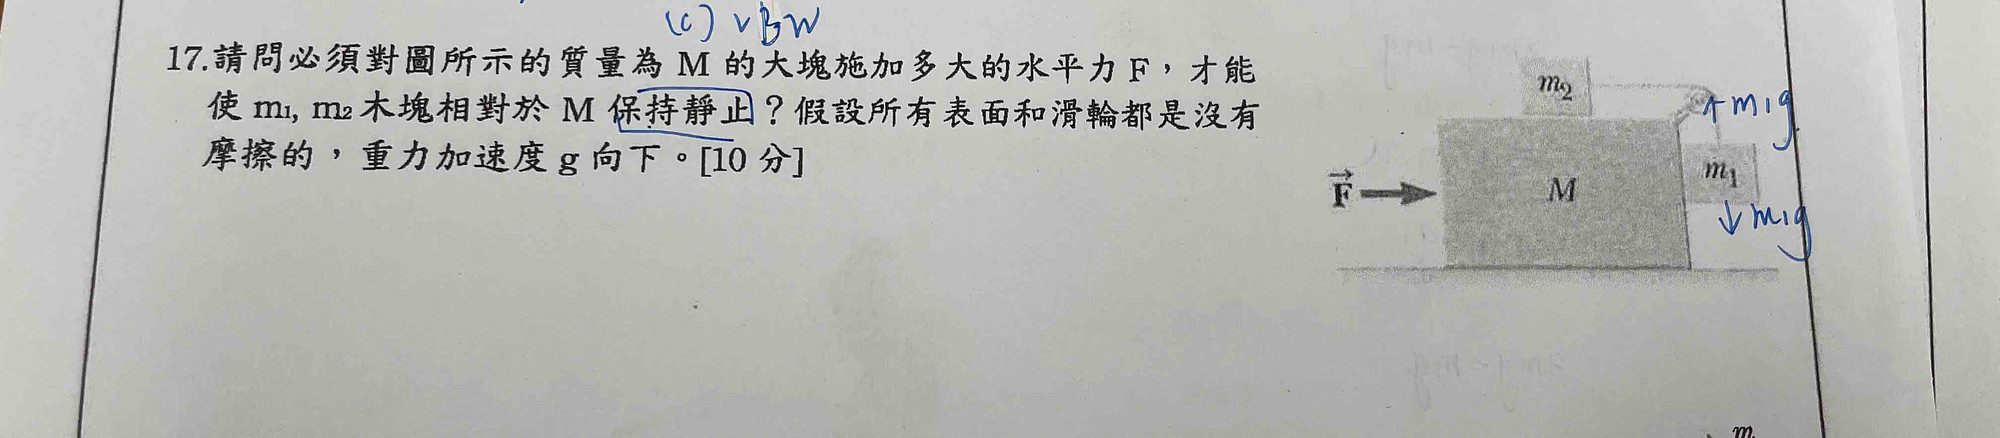 (C) VBW
17.請問必須對圖所示的質量為 M 的大塊施加多大的水平力 F，才能
使 m₁, m₂ 木塊相對於 M 保持靜止？假設所有表面和滑輪都是沒有
摩擦的，重力加速度 g 向下。[10 分]
m₂
↑m₁g
m₁
F
M
↓m₁g
m